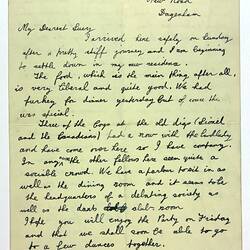 New Road
Dagenham
My Dearest Lucy
I arrived here safely on Sunday
after a pretty stiff journey, and I am beginning
to settle down in my new residence.
The food, which is the main thing after all,
is very liberal and quite good. We had
turkey for dinner yesterday but of course this
was special.
Three of the Boys at the old digs (Simcl
and the Canadians) had a row with the landlady
and have come over here so I have company.
In any the other fellows here seem quite a
sociable crowd. We have a parlour to sit in as
well as the dining room and it seems to be
the headquarters of a debating society as
well as the club room.
I hope you will enjoy the Party on Friday
and that we shall soon be able to go
to a few dances together.